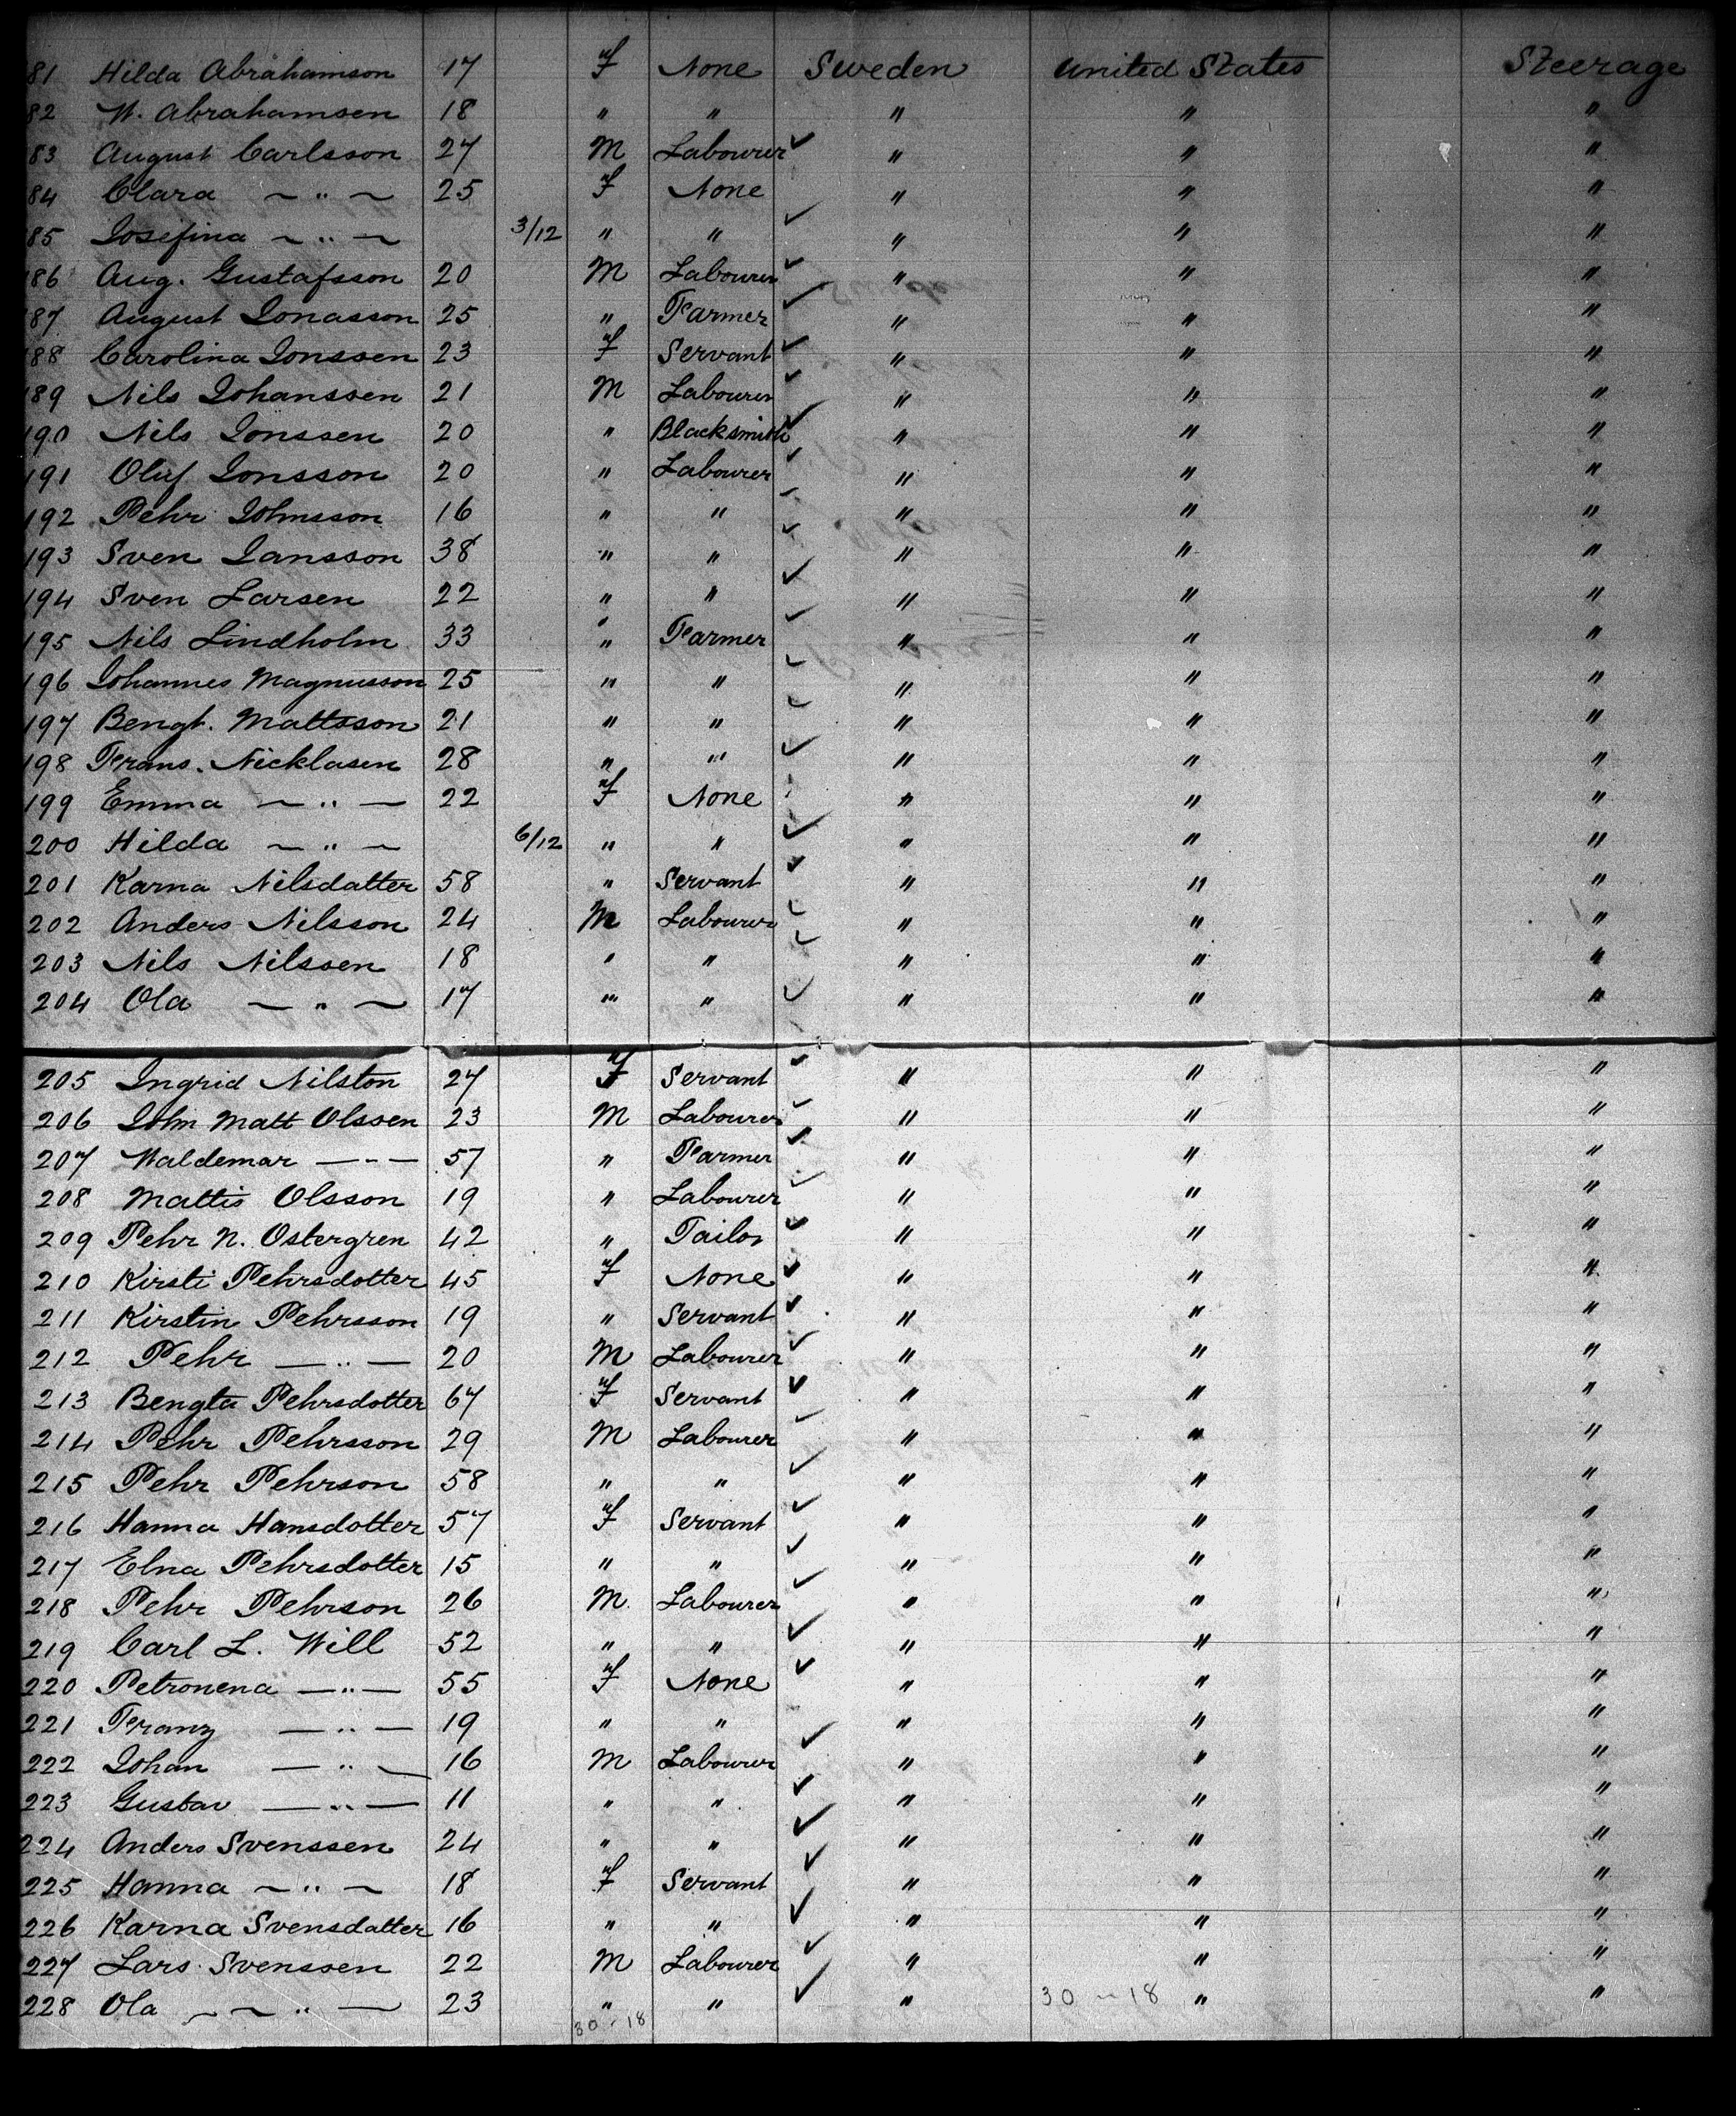 81 Hilda Abrahamson 17 F None Sweden United States Steerage
82 W. Abrahamsen 18 " " " " "
83 August Carlsson 27 M Labourer " " "
84 Clara — " — 25 F None " " "
85 Josefina — " — 3/12 " " " " "
186 Aug. Gustafsson 20 M Labourer " " "
187 August Jonasson 25 " Farmer " " "
188 Carolina Jonssen 23 F Servant " " "
189 Nils Johanssen 21 M Labourer " " "
190 Nils Jonssen 20 " Blacksmith " " "
191 Oluf Jonsson 20 " Labourer " " "
192 Pehr Johnsson 16 " " " " "
193 Sven Jansson 38 " " " " "
194 Sven Larsen 22 " " " " "
195 Nils Lindholm 33 " Farmer " " "
196 Johannes Magnusson 25 " " " " "
197 Bengt. Mattsson 21 " " " " "
198 Frans. Nicklasen 28 " " " " "
199 Emma — " — 22 F None " " "
200 Hilda — " — 6/12 " " " " "
201 Karna Nilsdatter 58 " Servant " " "
202 Anders Nilsson 24 M Labourer " " "
203 Nils Nilssen 18 " " " " "
204 Ola — " — 17 " " " " "
205 Ingrid Nilston 27 F Servant " " "
206 John Matt Olssen 23 M Labourer " " "
207 Waldemar — " — 57 " Farmer " " "
208 Mattis Olsson 19 " Labourer " " "
209 Pehr N. Ostergren 42 " Tailor " " "
210 Kirsti Pehrsdotter 45 F None " " "
211 Kirstin Pehrsson 19 " Servant " " "
212 Pehr — " — 20 M Labourer " " "
213 Bengta Pehrsdotter 67 F Servant " " "
214 Pehr Pehrsson 29 M Labourer " " "
215 Pehr Pehrson 58 " " " " "
216 Hanna Hansdotter 57 F Servant " " "
217 Elna Pehrsdotter 15 " " " " "
218 Pehr Pehrson 26 M. Labourer " " "
219 Carl L. Will 52 " " " " "
220 Petronena — " — 55 F None " " "
221 Franz — " — 19 " " " " "
222 Johan — " — 16 M Labourer " " "
223 Gustav — " — 11 " " " " "
224 Anders Svenssen 24 " " " " "
225 Hanna — " — 18 F Servant " " "
226 Karna Svensdatter 16 " " " " "
227 Lars Svenssen 22 M Labourer " " "
228 Ola — " — 23 " " " 30 - 18 " "
30 - 18